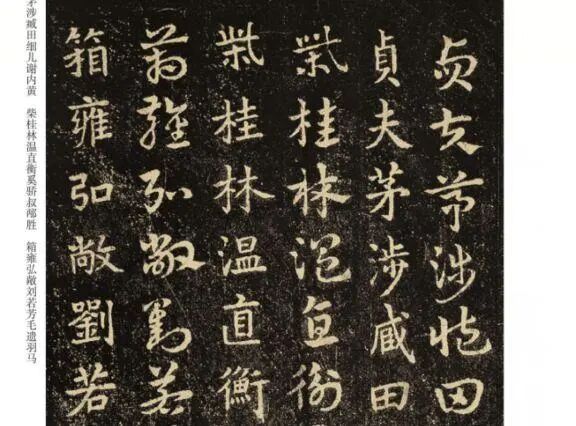 貞夫茅涉臧田
貞夫茅涉臧田
柴桂林温直衡
柴桂林温直衡
箱雍弘敞劉若
箱雍弘敞劉若
茅涉臧田细儿谢内黄 柴桂林温直衡奚骄叔邴胜 箱雍弘敞刘若芳毛遗羽马